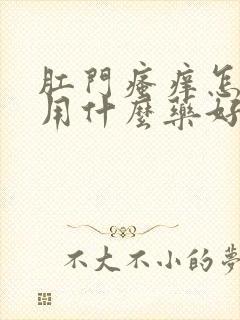 肛門瘙癢怎
用什麼藥好
不大不小的夢